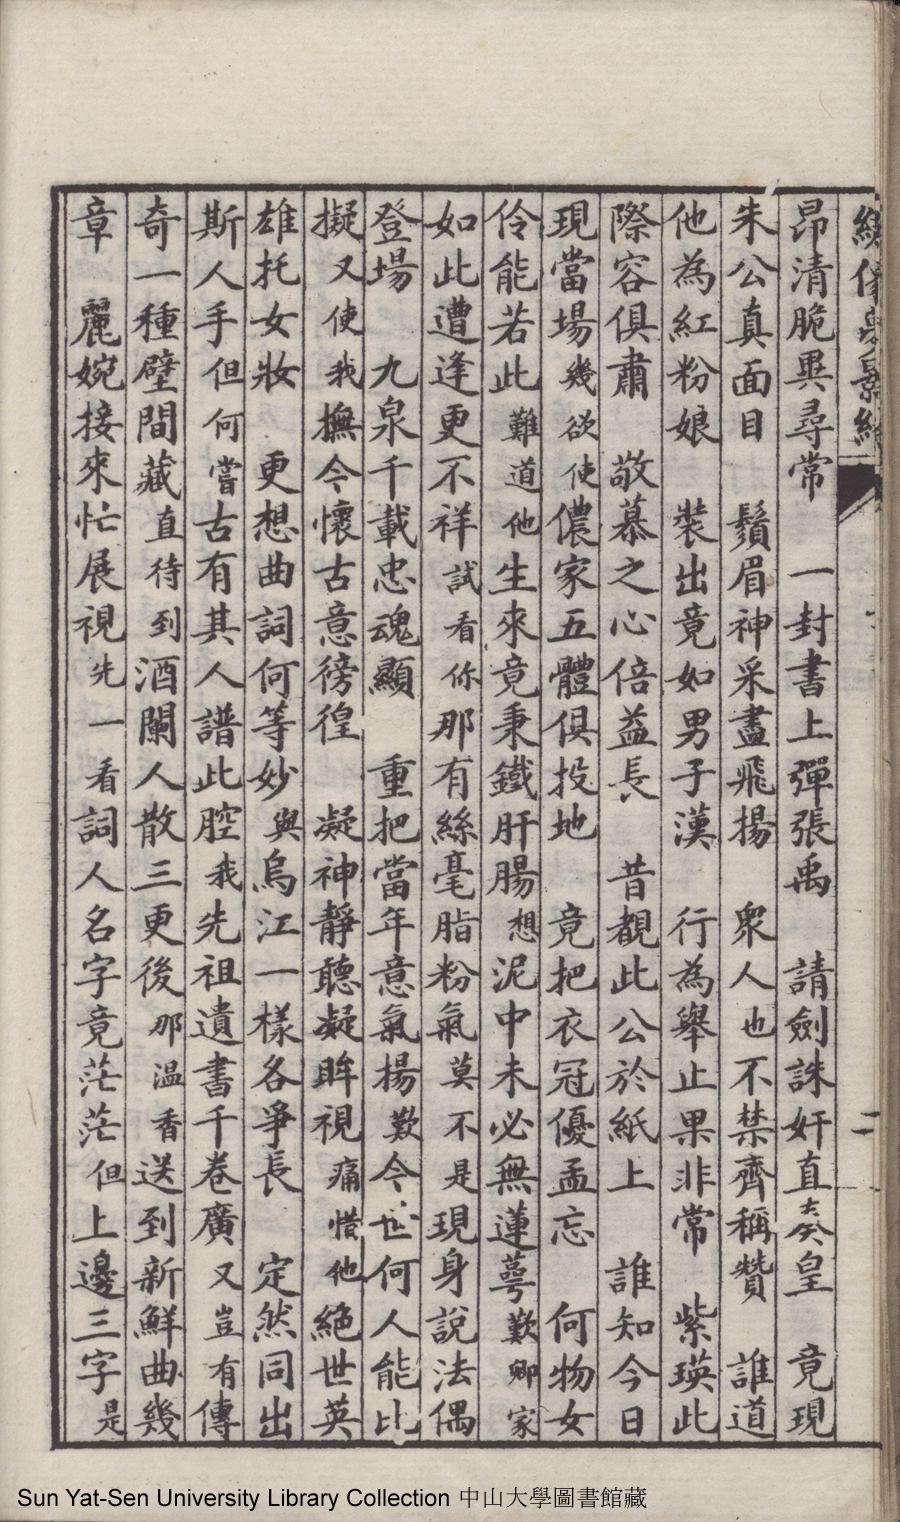 昂清脆異尋常　一封書上彈張禹　請劍誅奸直奏皇　竟現
朱公真面目　鬚眉神采盡飛揚　衆人也不禁齊稱贊　誰道
他為紅粉娘　裝出竟如男子漢　行為舉止果非常　紫瑛此
際容俱肅　敬慕之心倍益長　昔觀此公於紙上　誰知今日
現當場幾欲使儂家五體俱投地　竟把衣冠優孟忘　何物女
伶能若此難道他生來竟秉鐵肝腸想泥中未必無蓮萼歎卿家
如此遭逢更不祥試看你那有絲毫脂粉氣莫不是現身說法偶
登場　九泉千載忠魂顯　重把當年意氣揚歎今世何人能比
擬又使我撫今懷古意徬徨　凝神靜聽凝眸視痛惜他絕世英
雄托女妝　更想曲詞何等妙與烏江一樣各爭長　定然同出
斯人手但何嘗古有其人譜此腔我先祖遺書千卷廣又豈有傳
奇一種壁間藏直待到酒闌人散三更後那溫香送到新鮮曲幾
章　麗婉接來忙展視先一看詞人名字竟茫茫但上邊三字是
二
Sun Yat-Sen University Library Collection 中山大學圖書館藏